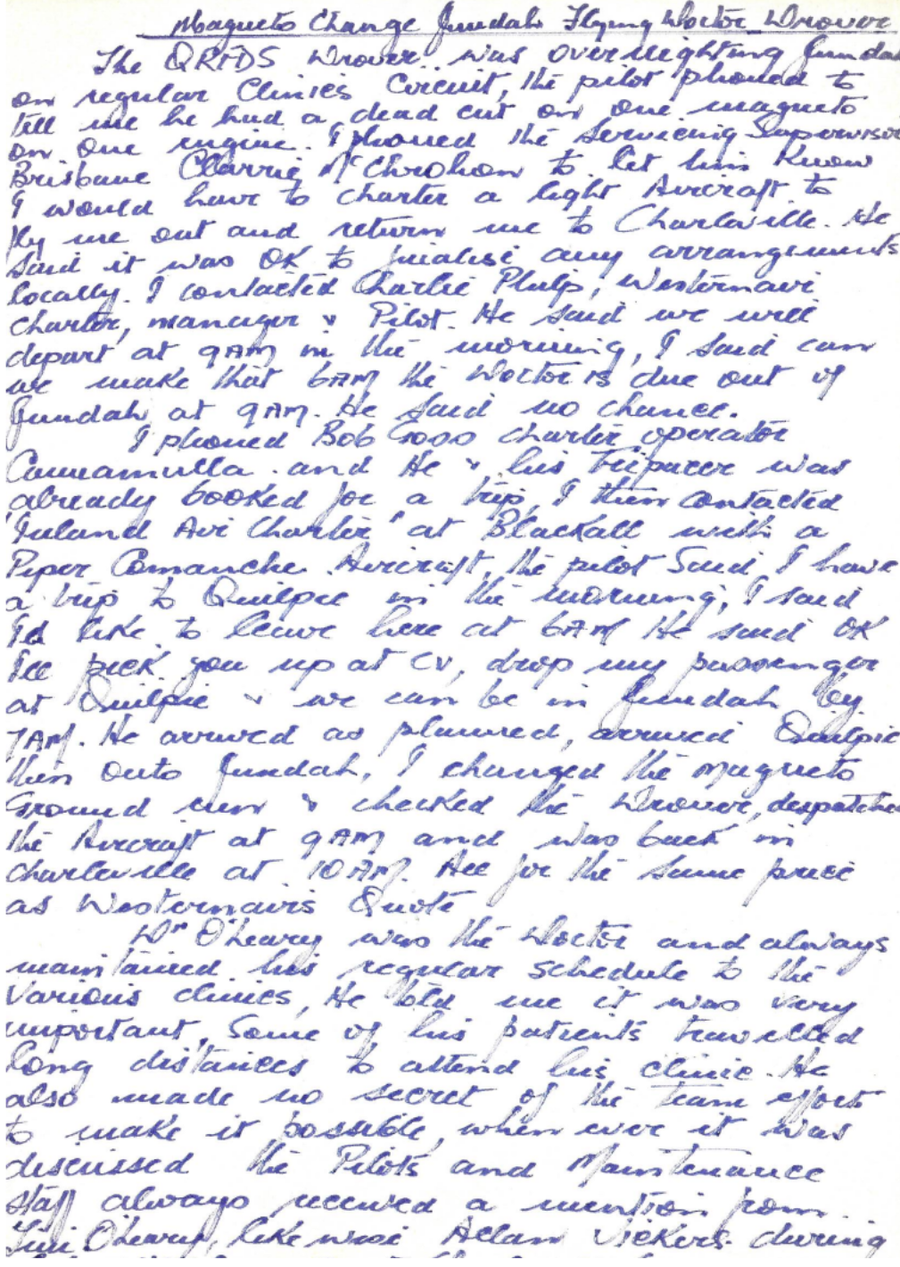 Magneto Change Jundah Flying Doctor Drover
The QRFDS Drover was overnighting Jundah
on regular Clinics Circuit, the pilot phoned to
tell me he had a dead cut on one magneto
on one engine. I phoned the Servicing Supervisor
Brisbane Clarrie to let him Know
I would have to charter a light Aircraft to
fly me out and return me to Charleville. He
said it was OK to finalise any arrangements
locally. I contacted Charlie Phelp, Westernair
Charter, manager & Pilot. He said we will
depart at 9AM in the morning, I said can
we make that 6AM the Doctor is due out of
Jundah at 9AM. He said no chance.
I phoned Bob charter operator
Cunnamulla and He & his Tripacer was
already booked for a trip, I then contacted
"Inland Avi Charter" at Blackall with a
Piper Comanche Aircraft, the pilot Said I have
a trip to Quilpie in the morning, I said
I'd like to leave here at 6AM He said OK
I'll pick you up at CV, drop my passenger
at Quilpie & we can be in Jundah by
7AM. He arrived as planned, arrived Quilpie
then onto Jundah, I changed the Magneto
Ground run & checked the Drover, despatched
the Aircraft at 9AM and was back in
Charleville at 10AM. All for the same price
as Westernairs Quote
Dr O'Leary was the Doctor and always
maintained his regular schedule to the
various clinics, He told me it was very
important, Some of his patients travelled
long distances to attend his clinic. He
also made no secret of the team effort
to make it possible, when ever it was
discussed the Pilots and Maintenance
staff always received a mention from
Tim O'Leary, like wise Allan Vickers during